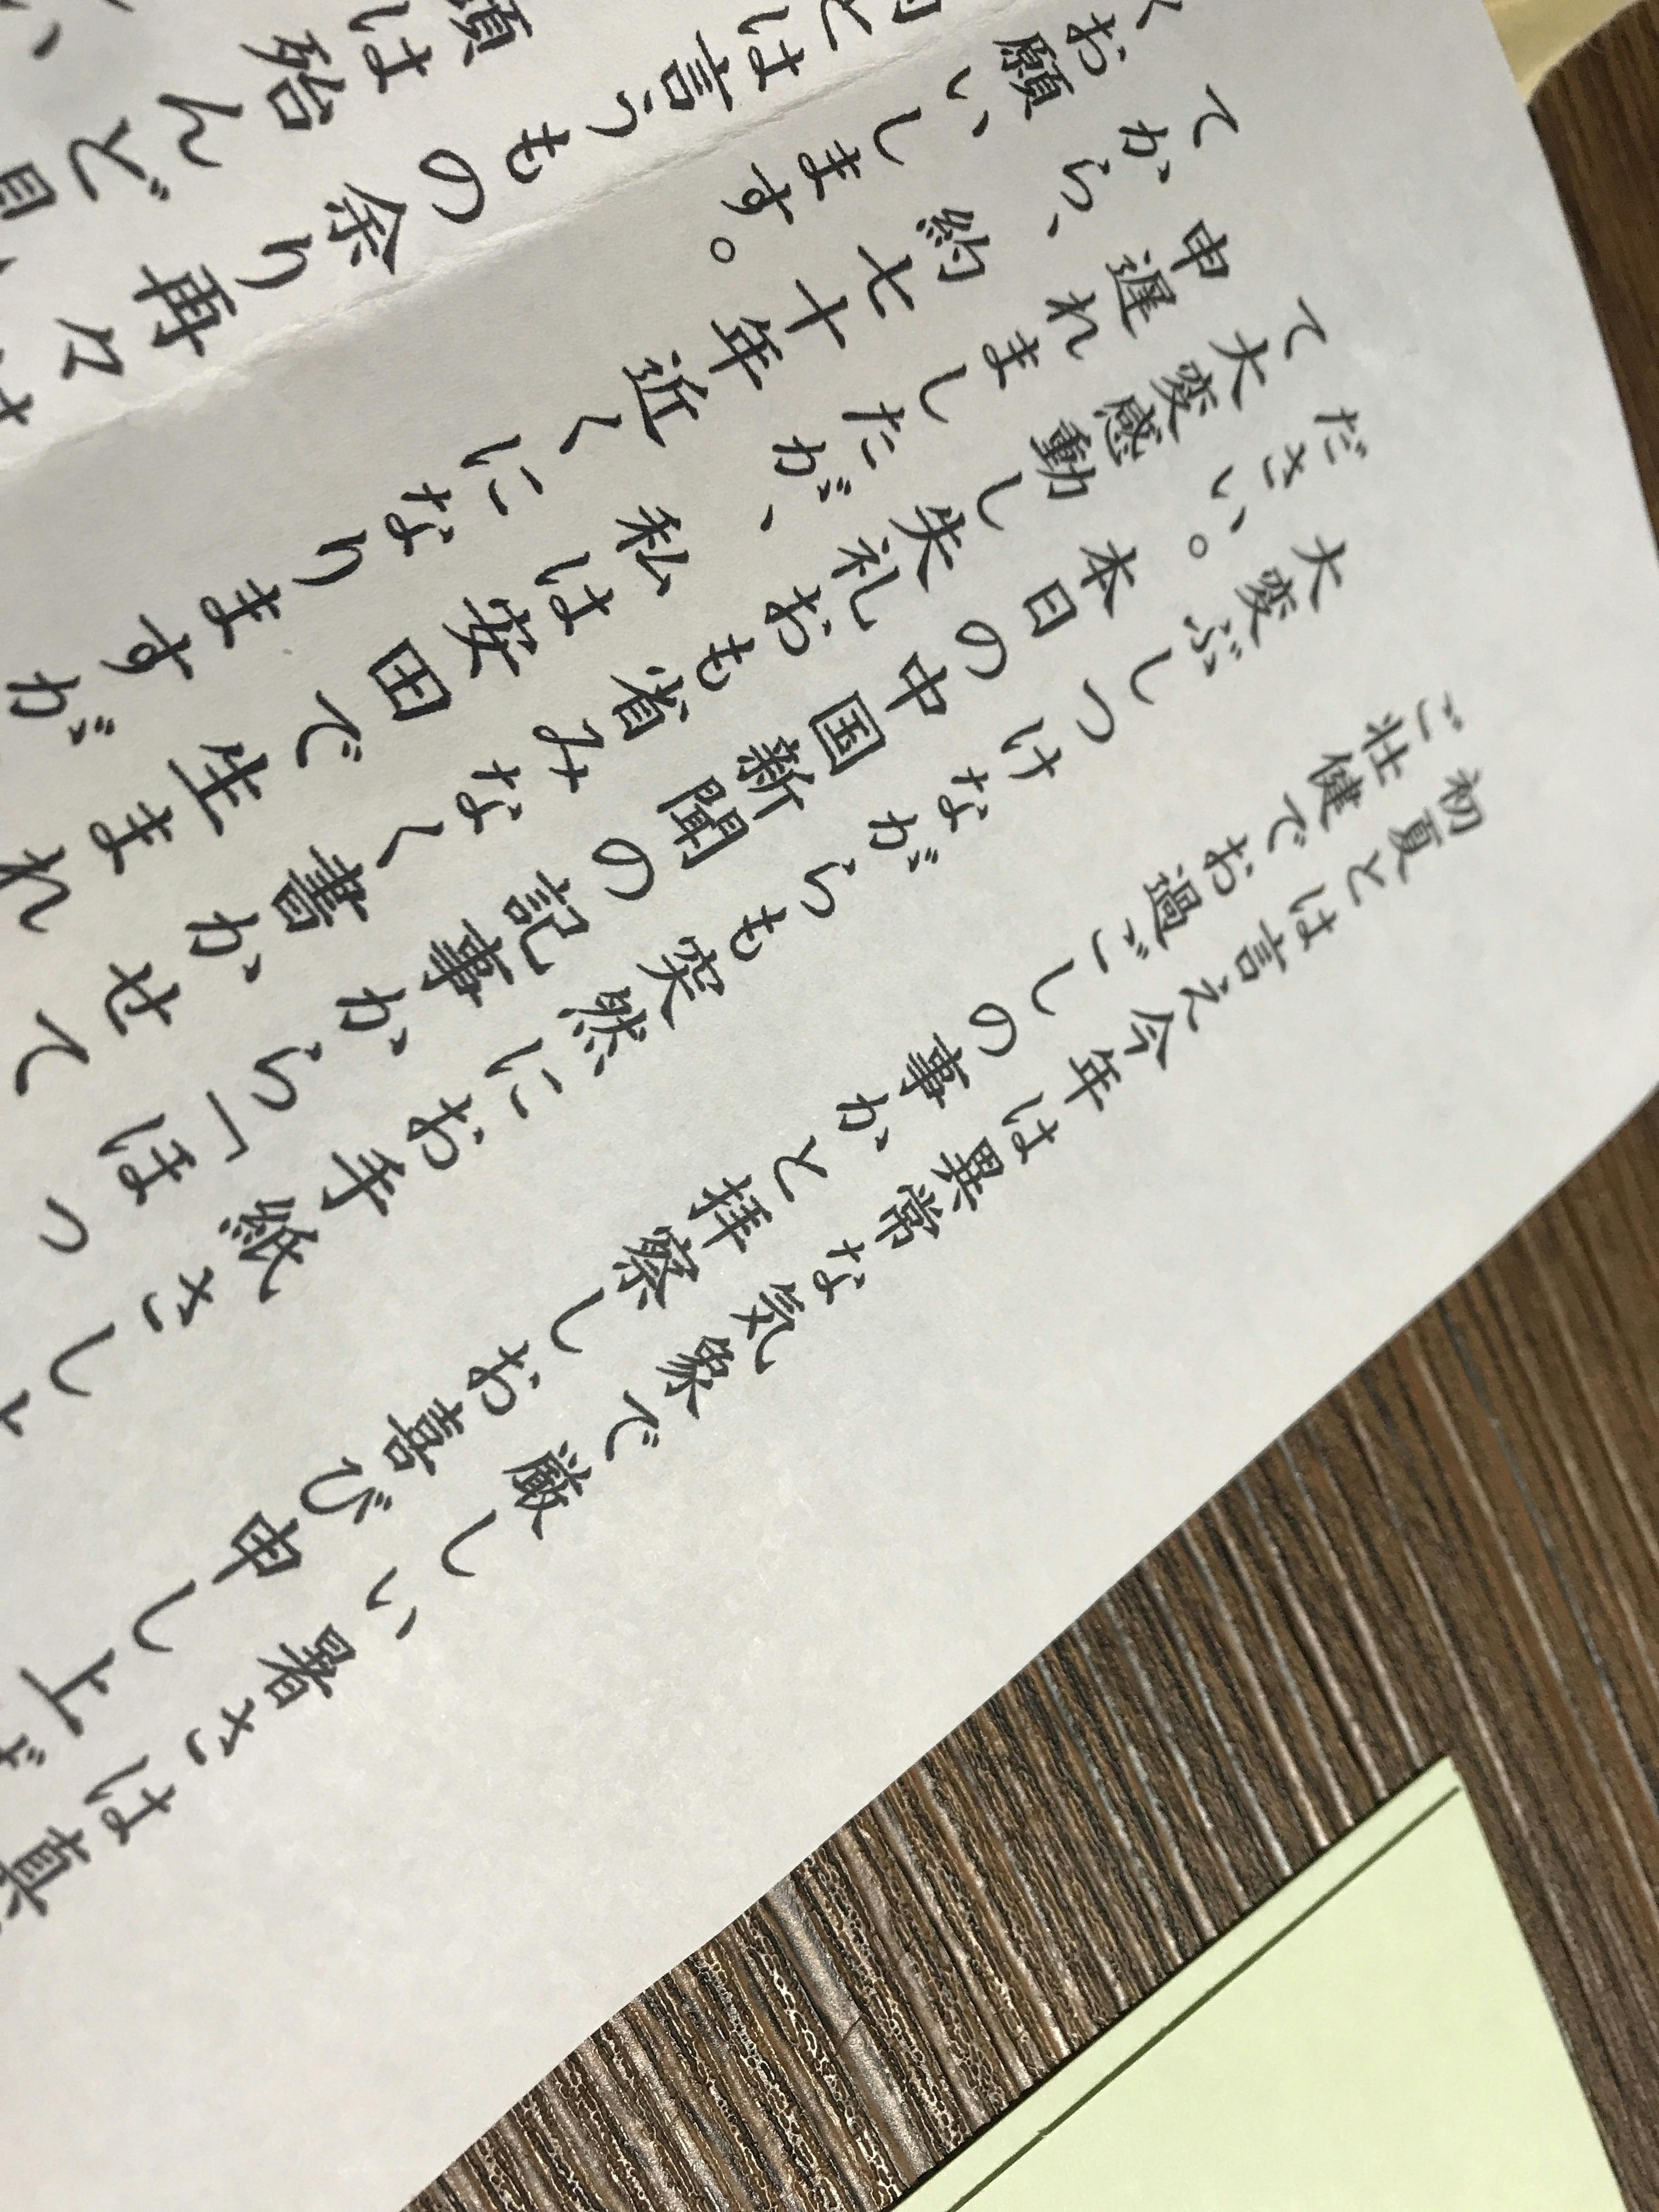 初夏とは言え今年は異常な気象で厳しい暑さは真
ご壮健でお過ごしの事かと拝察しお喜び申し上げ
大変ぶしつけながらも突然にお手紙さし
ださい。本日の中国新聞の記事から「ほっ
て大変感動し失礼おも省みなく書かせて
申遅れましたが、私は安田で生まれ
てから、約七十年近くになりますが
くお願いします。
とは言うもの余り再々
頃は殆んど見